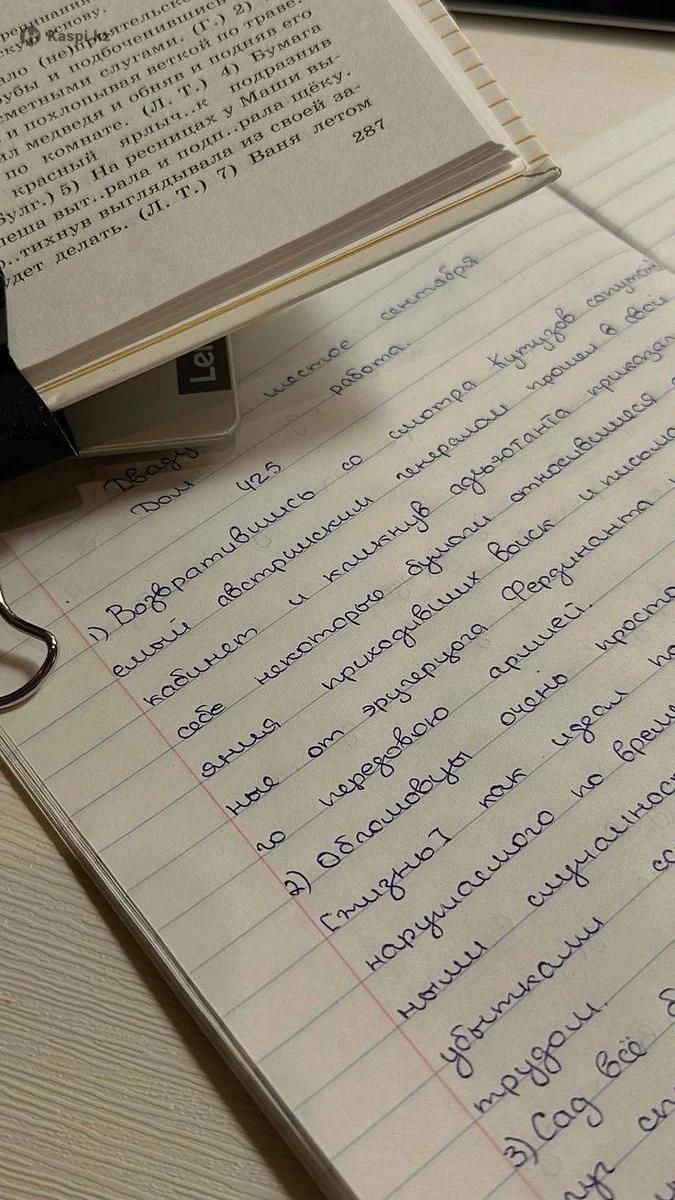 Kaspi.kz
скую основу.
ало (не)приятельско
рубы и подбоченившись
сметными слугами. (Г.) 2)
и похлопывая веткой по траве.
ил медведя и обняв и подняв его
по комнате. (Л. Т.) 4) Бумага
красный ярлыч..к подразнив
Булг.) 5) На ресницах у Маши вы-
леша выт..рала и подп..рала щёку.
р..тихнув выглядывала из своей за-
удет делать. (Л. Т.) 7) Ваня летом
287
Len
Дваду шестое сентября
Дом работа.
425
1) Возвратившись со смотра Кутузов сопутств
емый австрийским генералом прошел в свой
кабинет и кликнув адъютанта приказал
себе некоторые бумаги относившиеся
яния приходивших войск и письма
ные от эрцгерцога Фердинанта
го передовою армией.
2) Обломовцы очень просто
[жизнь] как идеал по
нарушаемого по време
ными случайност
убытками
трудом.
3) Сад всё